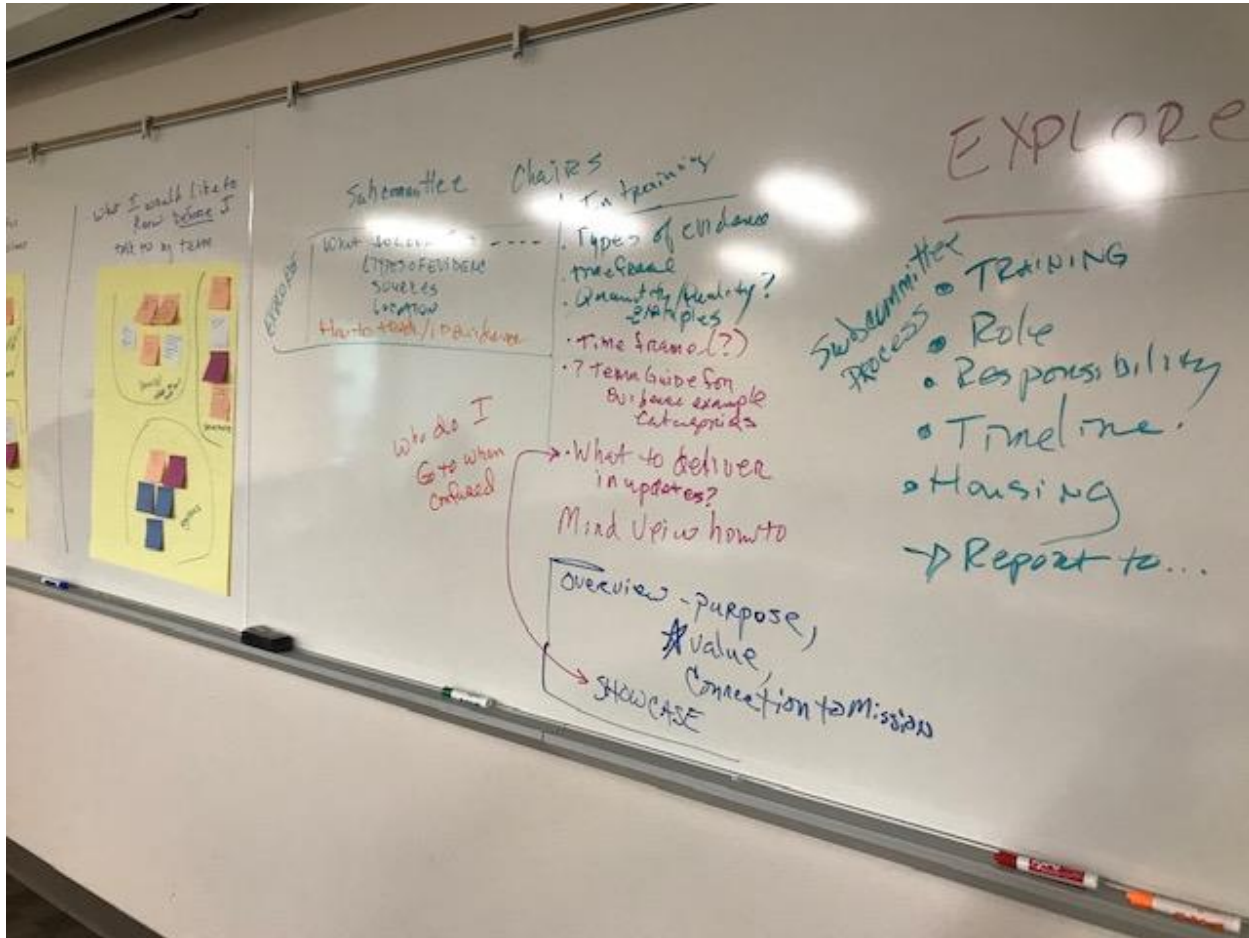 What I would like to
know before I
talk to my team
Subcommittee Chairs
What
(TYPES OF EVIDENC
SOURCES
LOCATION
How to
In training
• Types of evidence
timeframe
• Quantity/Quality?
examples
• Time frame (?)
• ? Team Guide for
Evidence example
Categories
• What to deliver
in updates?
Mind View how to
Who do I
Go to when
confused
Overview - purpose,
value,
Connection to Mission
SHOWCASE
EXPLORE
Subcommittee
PROCESS
• TRAINING
• Role
• Responsibility
• Timeline
• Housing
→ Report to...